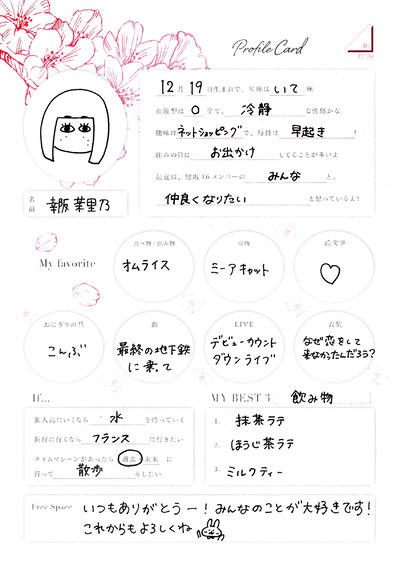 Profile Card
12月19日生まれで、星座はいて座
血液型はO型で、冷静な性格かな
趣味はネットショッピングで、特技は早起き！
休みの日はお出かけしてることが多いよ
最近は、櫻坂46メンバーのみんなと、
仲良くなりたいと思っているよ！
名前 幸阪 茉里乃
My favorite
食べ物/飲み物 動物 絵文字
オムライス ミーアキャット ♡
おにぎりの具 曲 LIVE 衣装
こんぶ 最終の地下鉄に乗って デビューカウントダウンライブ なぜ恋をして来なかったんだろう?
If...
無人島にいくなら水を持っていく
旅行に行くならフランスに行きたい
タイムマシーンがあったら過去 未来に
行って散歩をしたい
MY BEST 3 飲み物
1. 抹茶ラテ
2. ほうじ茶ラテ
3. ミルクティー
Free Space
いつもありがとうー！みんなのことが大好きです！
これからもよろしくね